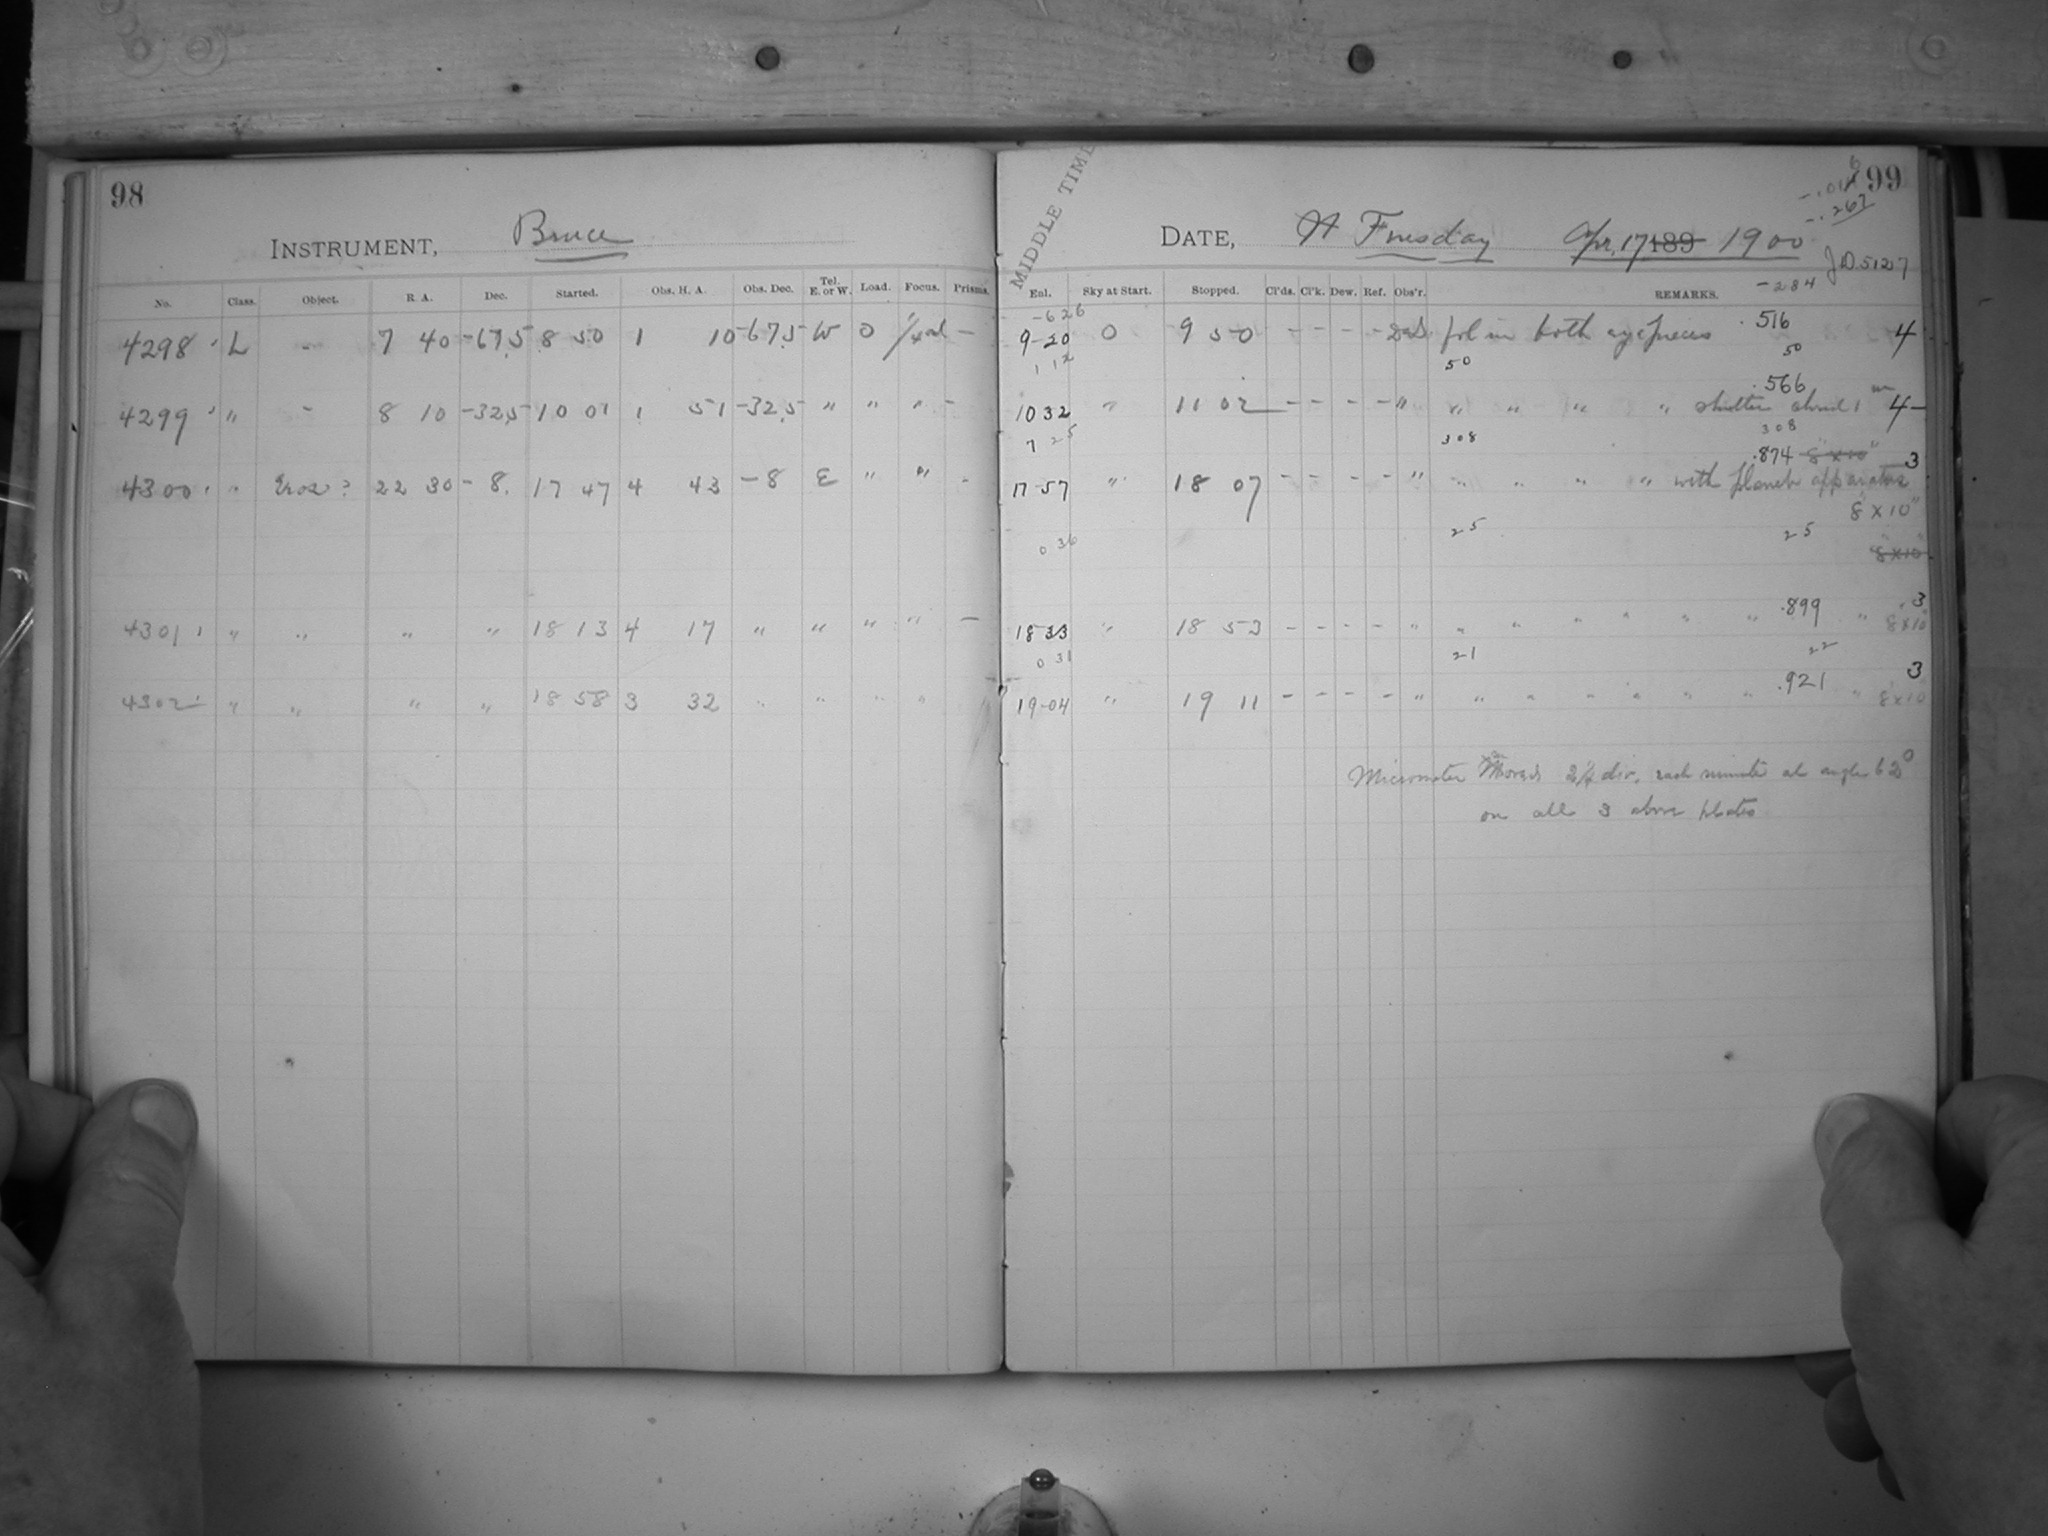 98
INSTRUMENT, Bruce
No. Class. Object. R. A. Dec. Started. Obs. H. A. Obs. Dec. Tel. E. or W. Load. Focus. Prisms.
4298 L - 7 40 -67.5 8 50 1 10 -67.5 W 0 -
4299 " - 8 10 -32.5 10 01 1 51 -32.5 " " " -
4300 " Eros? 22 30 - 8. 17 47 4 43 -8 E " " -
4301 " " " " 18 13 4 17 " " " " -
4302 " " " " 18 58 3 32 " " " "
MIDDLE TIME
6
99
-.267
DATE, Tuesday Apr. 17 189 1900
J.D. 5127
-284
Eol. Sky at Start. Stopped. Cl'ds. Cl'k. Dew. Ref. Obs'r. REMARKS.
-626
9-20 0 9 50 - - - - fol in both eyepieces .516 4
1 12 50 50
.566
10 32 " 11 02 - - - - " " " " " shutter 1 m 4-
7 25 308 308
.874 8"x10" 3
17-57 " 18 07 - - - - " " " " " with planet apparatus
8"x10"
0 36 25 25
8"x10"
18 33 " 18 53 - - - - " " " " " " " .899 " 3
8x10
0 31 21 22
19-04 " 19 11 - - - - " " " " " " " .921 " 3
8x10
Micrometer Moved 2¼ div. each minute at angle 62°
on all 3 above plates